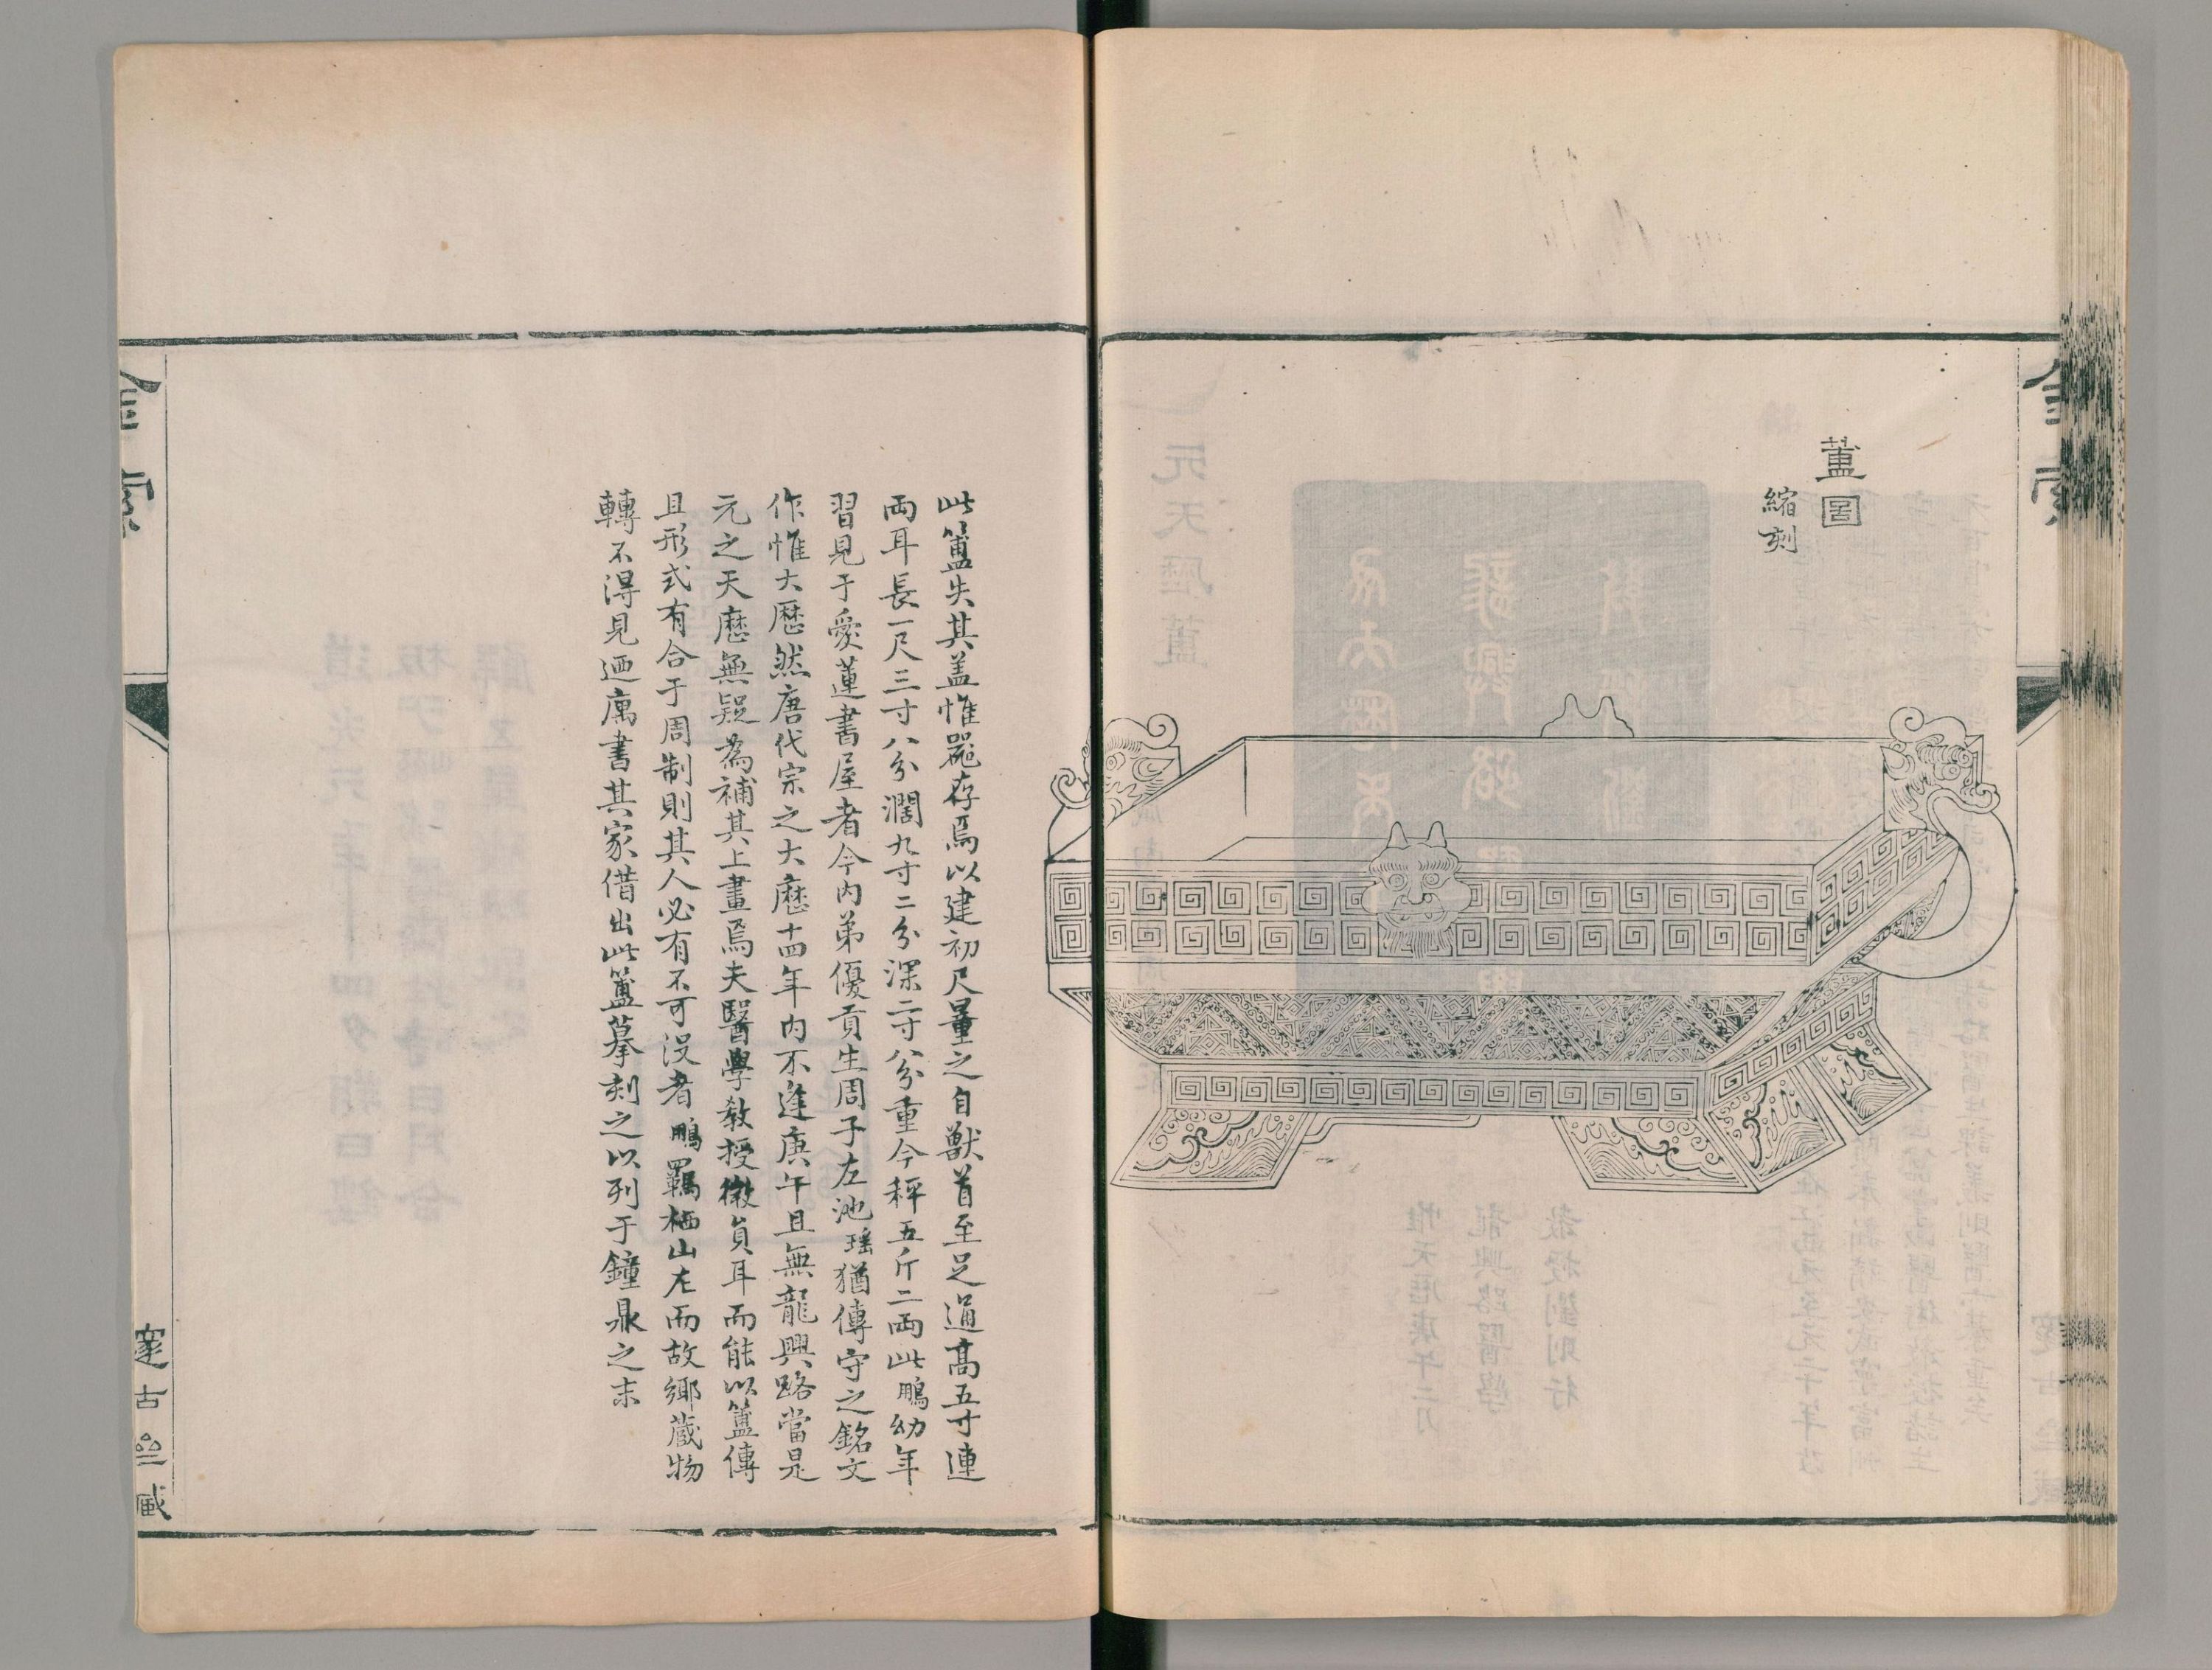 簠圖
縮刻
此簠失其盖惟器存焉以建初尺量之自獸首至足通高五寸連
兩耳長一尺三寸八分濶九寸二分深二寸分重今秤五斤二兩此鵬幼年
習見于愛蓮書屋者今内弟優貢生周子左池瑤猶傳守之銘文
作惟大曆然唐代宗之大曆十四年内不逢庚午且無龍興路當是
元之天曆無疑為補其上畫焉夫醫學教授微員耳而能以簠傳
且形式有合于周制則其人必有不可没者鵬羈栖山左而故鄉蔵物
轉不得見迺寓書其家借出此簠摹刻之以列于鐘鼎之末
金索
邃古 藏